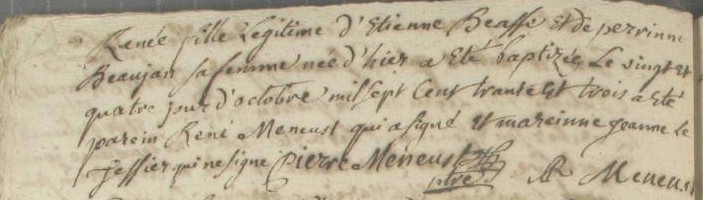 Renée fille Legitime d'Etienne Beasse Et de perrinne
Beaujan sa femme nee d'hier a Eté baptizée Le vingt Et
quatre jour d'octobre mil sept Cent trante Et trois a Eté
parein René Meneust qui a signé Et mareinne jeanne Le
Tessier qui ne signe Pierre Meneust R Meneust
ptre